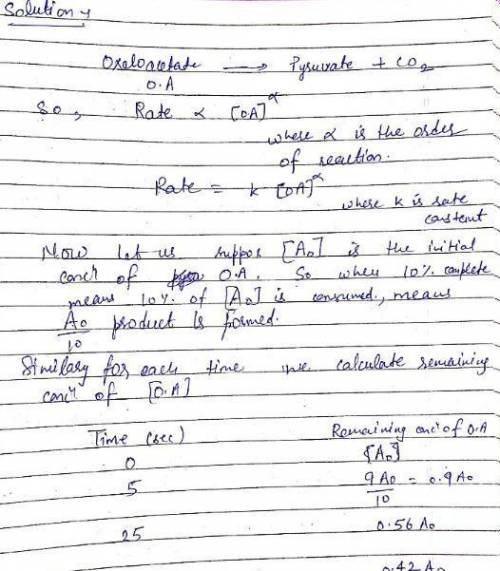 Solution →
Oxeloacetade → Pyruvate + CO2
O.A
So, Rate ∝ [OA]^α
where α is the order
of reaction.
Rate = k [OA]^α
where k is rate
constent
Now let us suppos [A0] is the initial
conc'n of O.A. So when 10% complete
means 10% of [A0] is consumed, means
A0/10 product is formed.
Similary for each time we calculate remaining
conc'n of [O.A]
Time (sec) Remaining conc'n of O.A
0 [A0]
5 9A0/10 = 0.9A0
25 0.56 A0
0.42 A0